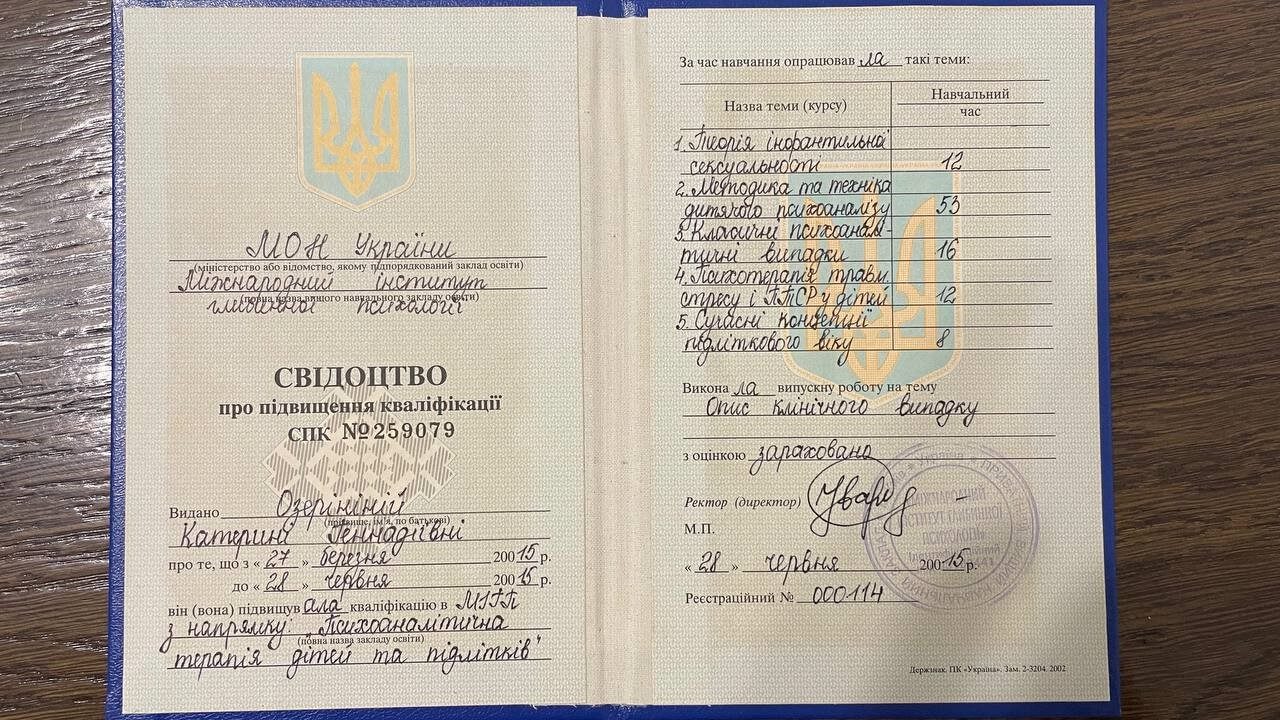 МОН України
(міністерство або відомство, якому підпорядкований заклад освіти)
Міжнародний інститут
(повна назва вищого навчального закладу освіти)
глибинної психології
СВІДОЦТВО
про підвищення кваліфікації
СПК №259079
Видано Озерініній
(прізвище, ім'я, по батькові)
Катерині Геннадіївні
про те, що з « 27 » березня 200 15 р.
до « 28 » червня 200 15 р.
він (вона) підвищув ала кваліфікацію в МІГП
з напрямку: "Психоаналітична
(повна назва закладу освіти)
терапія дітей та підлітків"
За час навчання опрацював ла такі теми:
Назва теми (курсу) Навчальний
час
1. Теорія інфантильної
сексуальності 12
2. Методика та техніка
дитячого психоаналізу 53
3. Класичні психоаналі-
тичні випадки 16
4. Психотерапія травм.
стресу і ПТСР у дітей 12
5. Сучасні концепції
підліткового віку 8
Викона ла випускну роботу на тему
Опис клінічного випадку
з оцінкою зараховано
Ректор (директор)
М.П.
« 28 » червня 200 15 р.
Реєстраційний № 000114
Україна
МІЖНАРОДНИЙ
ІНСТИТУТ ГЛИБИННОЇ
ПСИХОЛОГІЇ
Держзнак. ПК «Україна». Зам. 2-3204. 2002